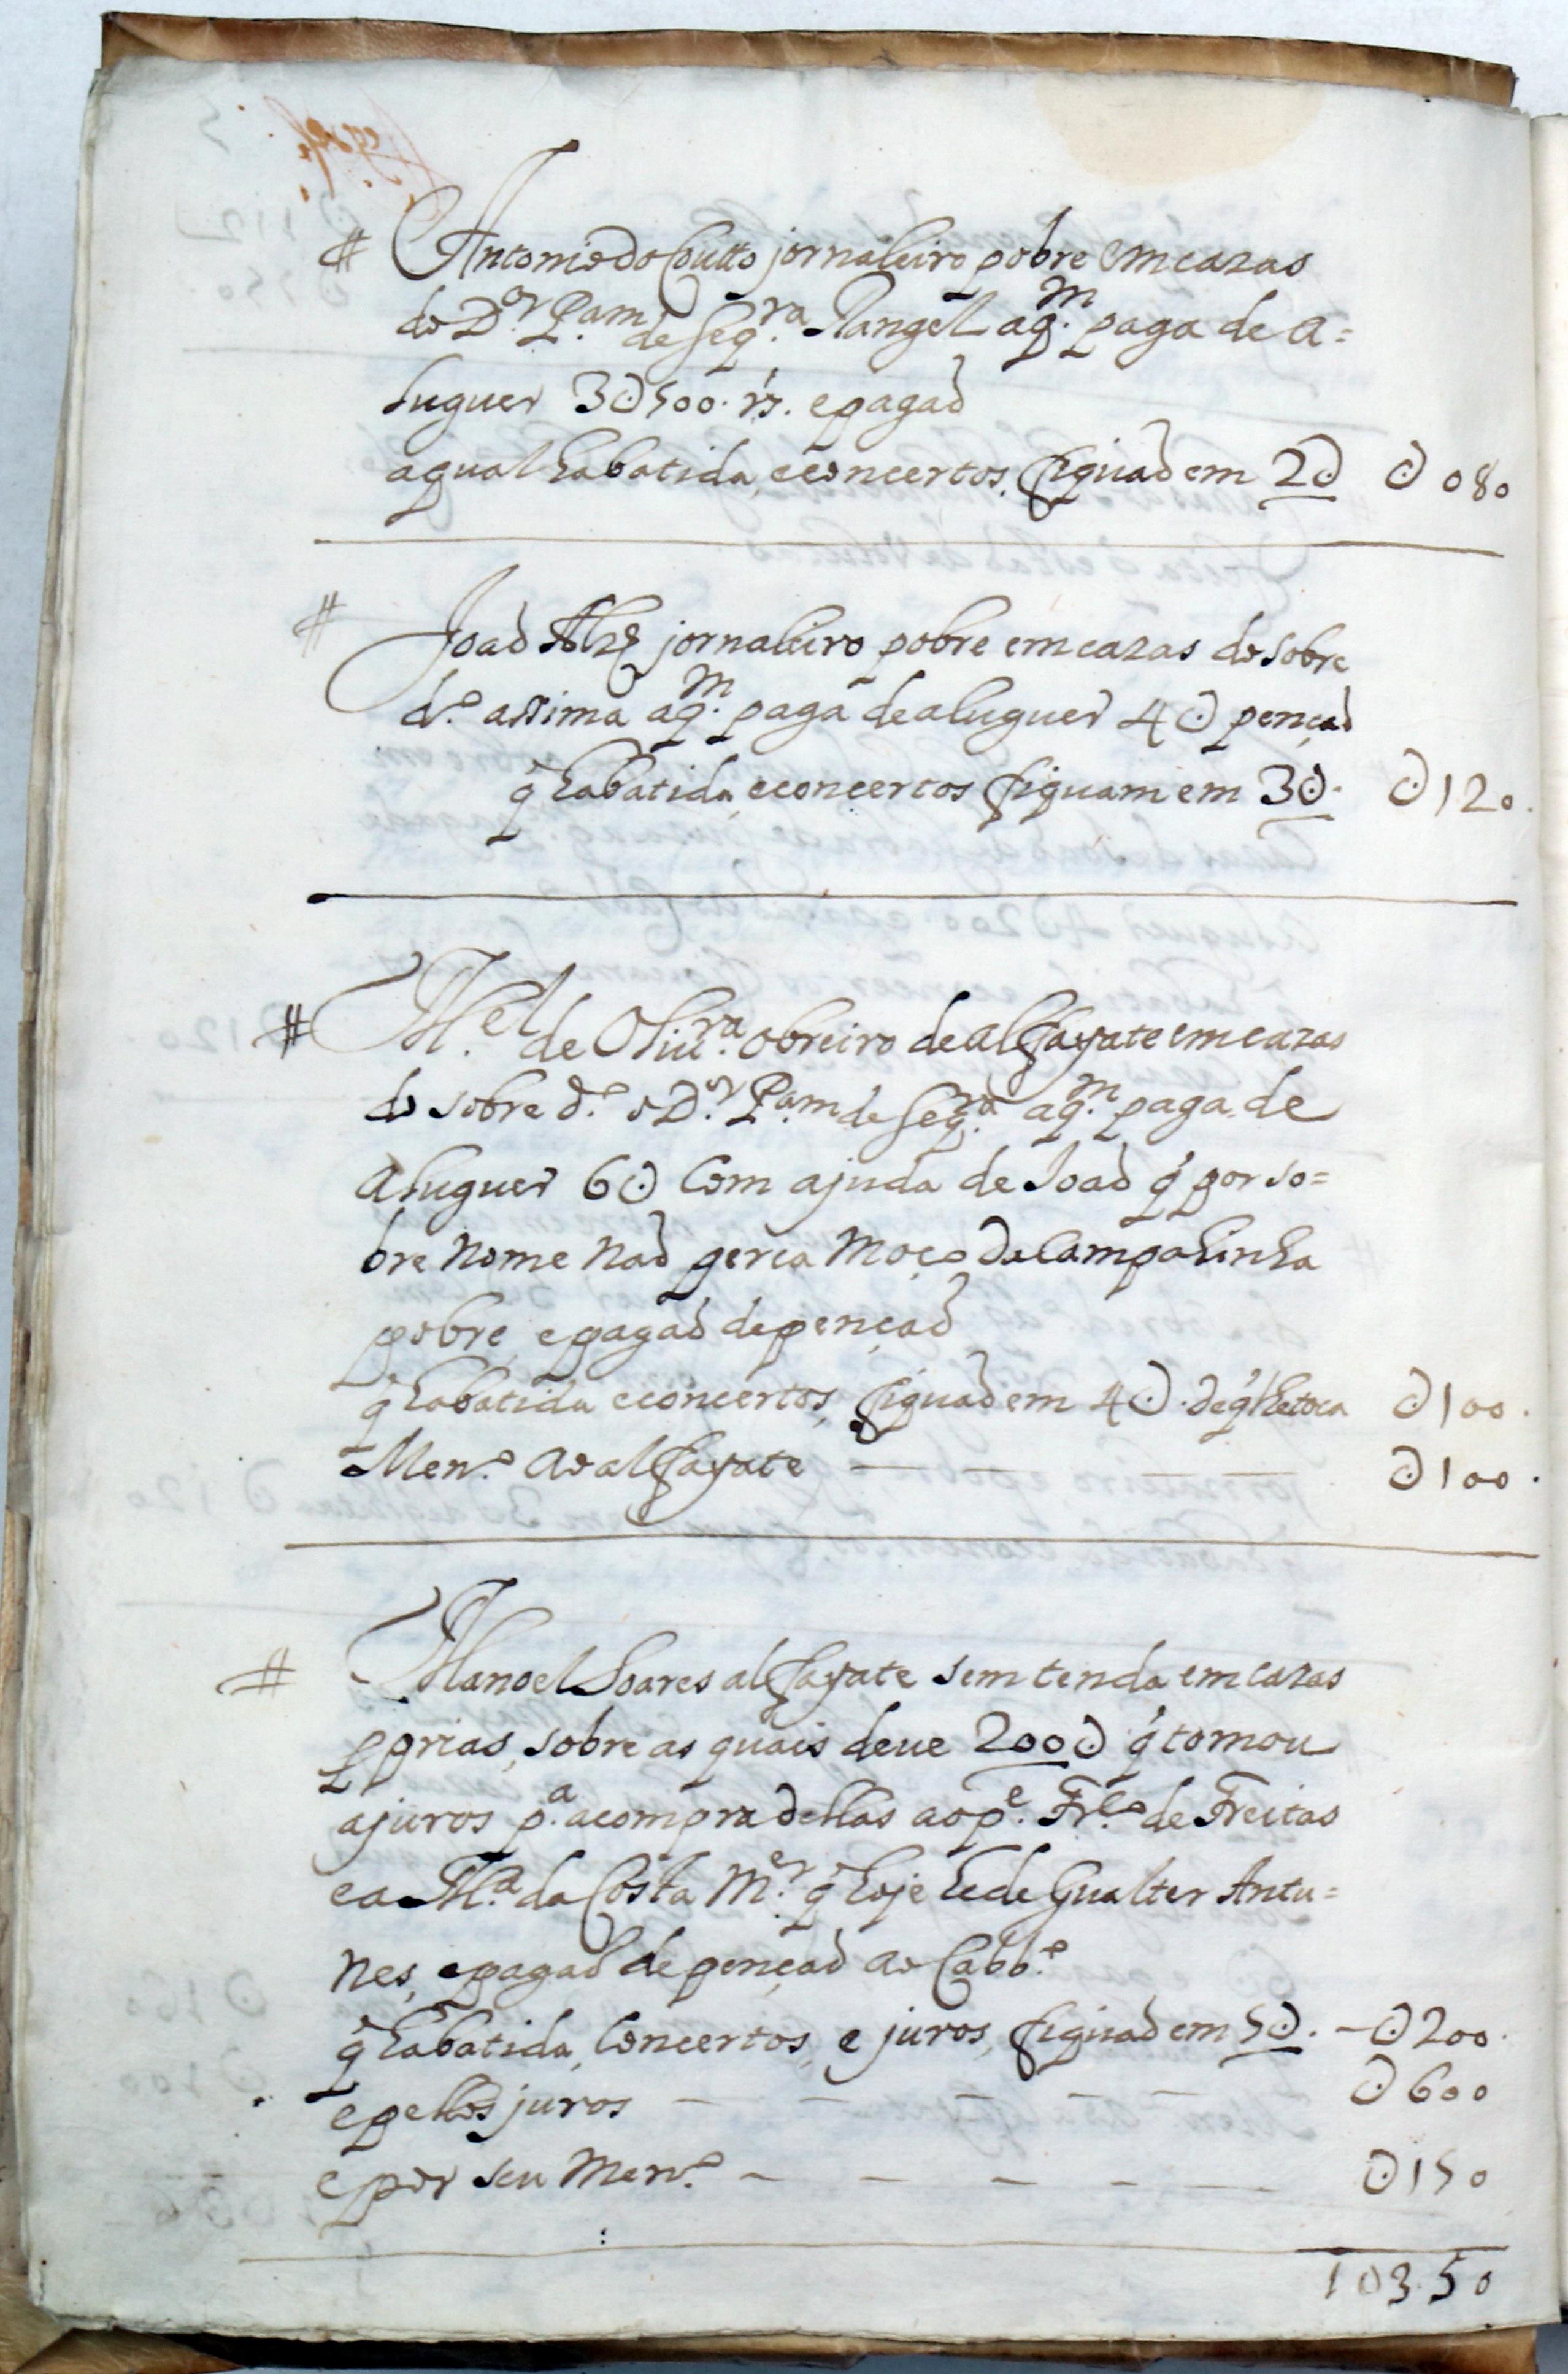 # Antonio do Coutto jornaleiro pobre em cazas
do D.or P.am de Seq.ra Rangel a q.m paga de a=
luguer 3@500. rs. e pagaõ
a qual habatida, e concertos, fiquaõ em 2@ @080
# Joaõ Alz jornaleiro pobre em cazas do sobre
d.o assima a q.m paga de aluguer 4@ pençaõ
q̃ habatida, e concertos fiquam em 3@. @120.
# M.el de Oliu.ra obreiro de alfayate em cazas
do sobre d.o o D.or P.am de Seq.ra a q.m paga de
aluguer 6@ Com ajuda de Joaõ q̃ por so=
bre nome naõ perca Moço da Campahinha
pobre e pagaõ de pençaõ
q̃ habatida e concertos, fiquaõ em 4@. de q̃ lhe toca @100.
Men.o Ao alfayate @100.
# Manoel Soares alfayate sem tenda em cazas
pprias, sobre as quais deue 200@ q̃ tomou
a juros p.a a compra dellas ao p.e Fr.co de Freitas
e a M.a da Costa M.er q̃ hoje he de Gualter Antu=
nes, e pagaõ de pençaõ ao Cabb.o
q̃ habatida, Concertos, e juros, fiquaõ em 5@. @200.
e pellos juros @600
e por seu Men.o @150
1@3.50